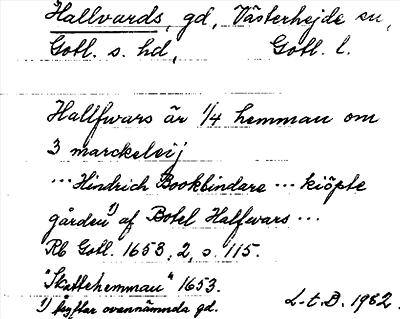 Hallvards, gd, Västerhejde sn,
Gotl. s. hd, Gotl. l.
Hallfwars är 1/4 hemman om
3 marckeleij
... Hindrich Bookbindare ... kiöpte
gården 1) af Botel Halfwars ...
Rb Gotl. 1653, 2, s. 115.
"Skattehemman" 1653.
1) syftar ovannämnda gd. L.t.D. 1962.